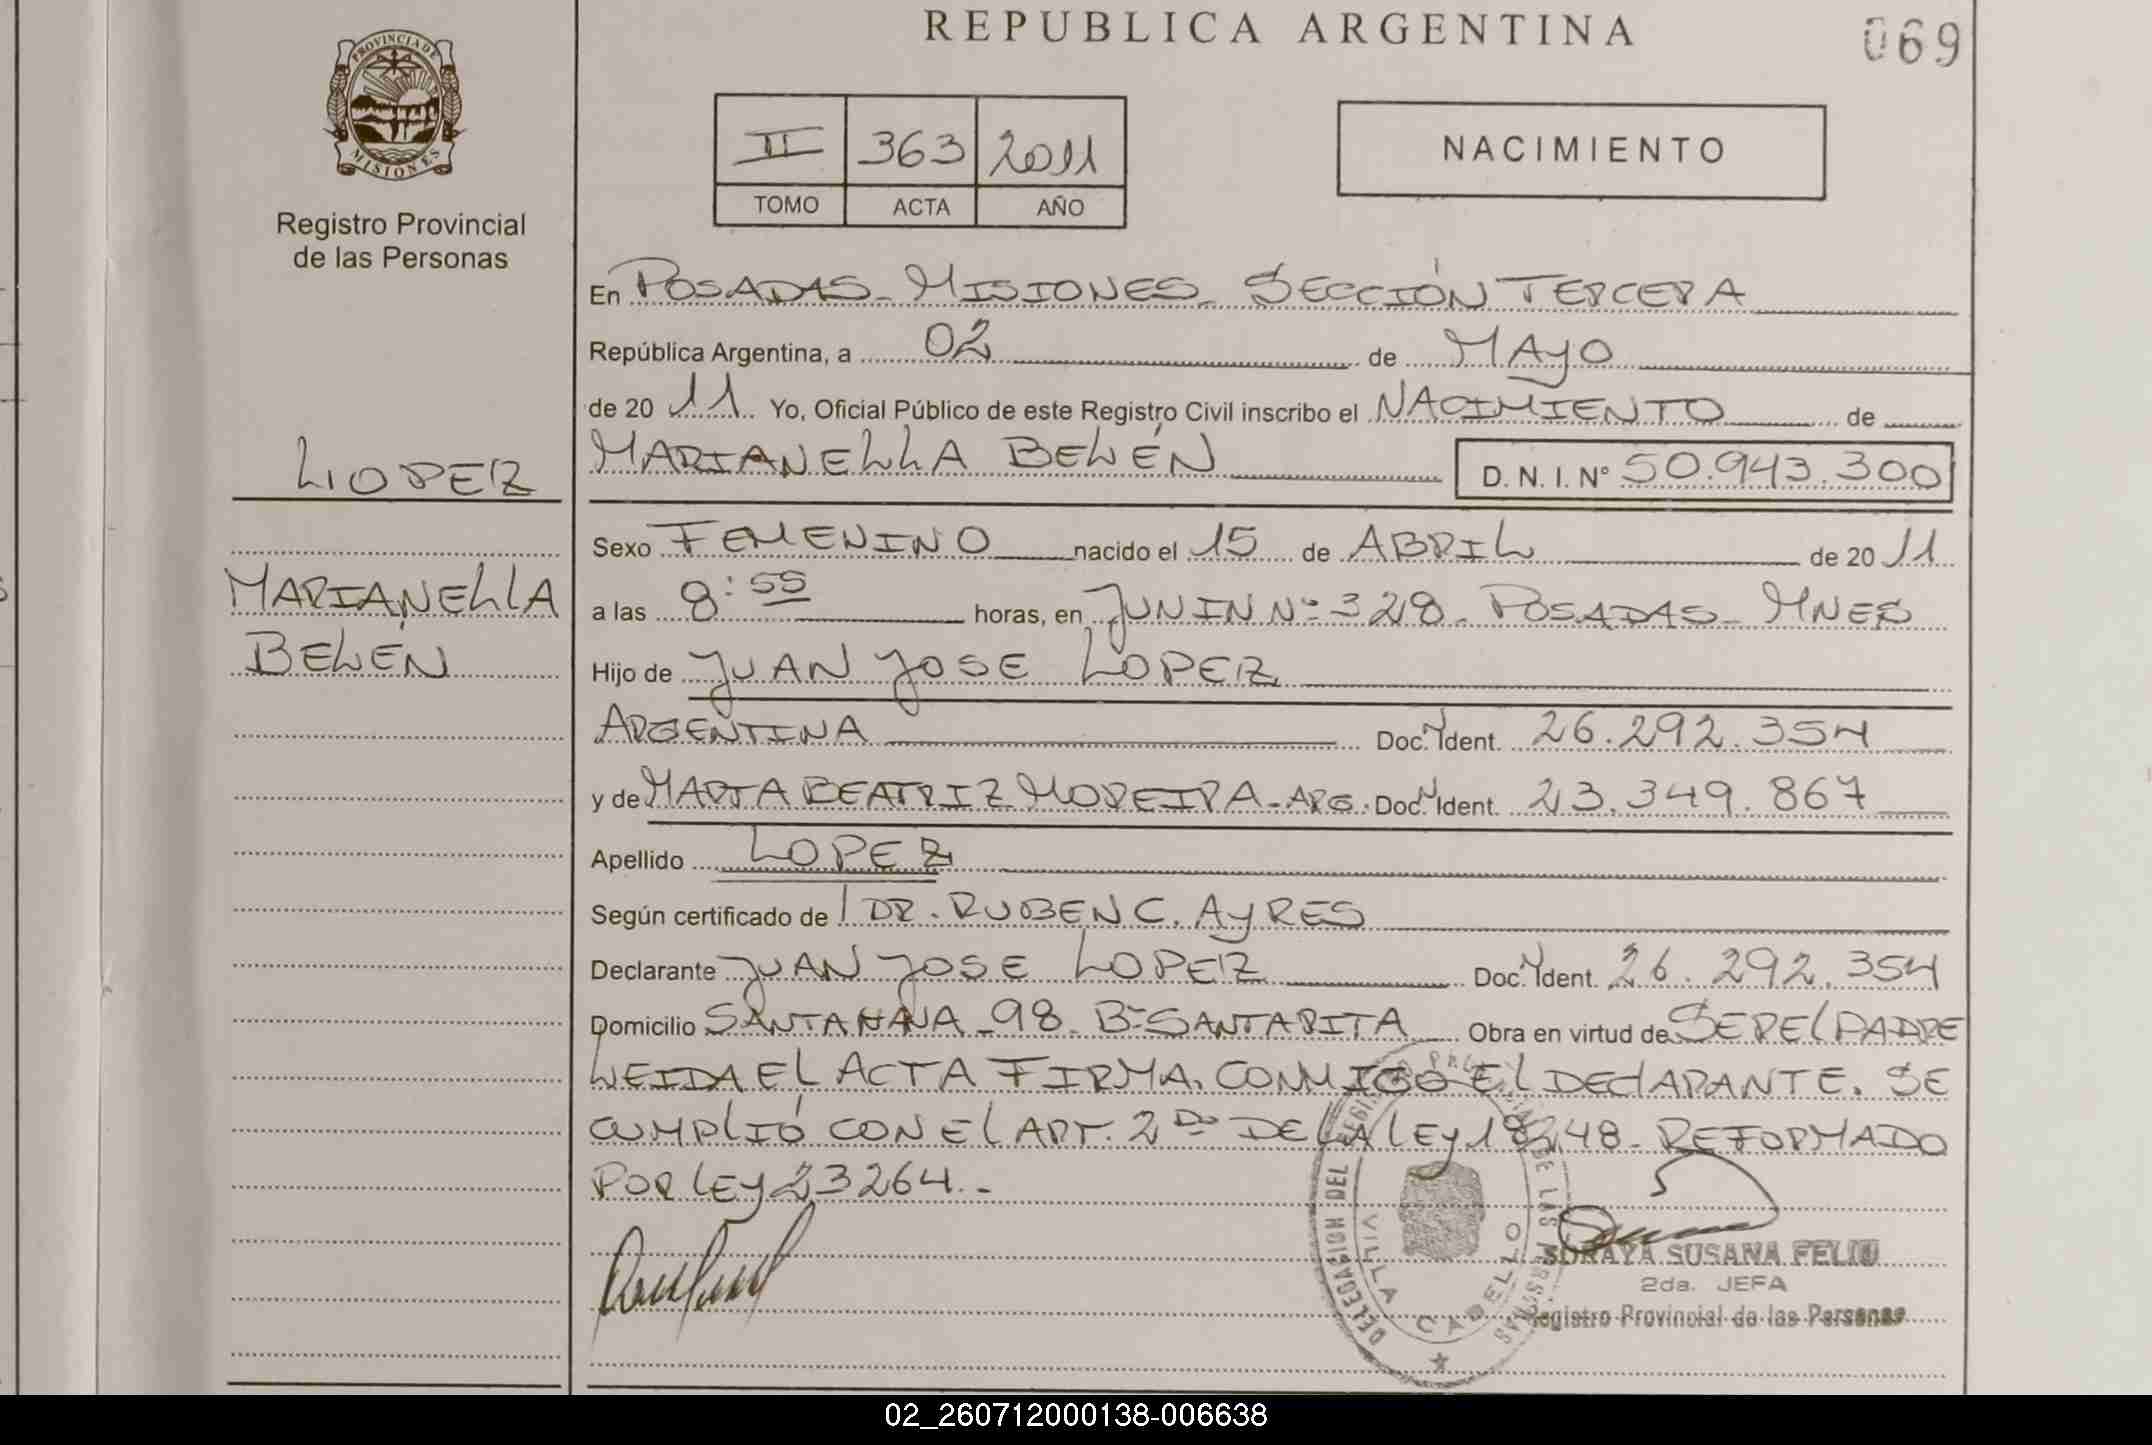 REPUBLICA ARGENTINA
069
PROVINCIA DE
MISIONES
Registro Provincial
de las Personas
II 363 2011
TOMO ACTA AÑO
NACIMIENTO
En POSADAS - MISIONES - SECCIÓN TERCERA
República Argentina, a 02 de MAYO
de 20 11 Yo, Oficial Público de este Registro Civil inscribo el NACIMIENTO de
MARIANELLA BELÉN D. N. I. N° 50.943.300
LOPEZ
MARIANELLA
BELÉN
Sexo FEMENINO nacido el 15 de ABRIL de 20 11
a las 8:55 horas, en JUNIN Nº 328 - POSADAS - MNES
Hijo de JUAN JOSE LOPEZ
ARGENTINA Doc. Ident. 26.292.354
y de MARTA BEATRIZ MOREIRA - ARG. Doc. Ident. 23.349.867
Apellido LOPEZ
Según certificado de DR. RUBEN C. AYRES
Declarante JUAN JOSE LOPEZ Doc. Ident. 26.292.354
Domicilio SANTA ANA - 98 - Bº SANTA RITA Obra en virtud de SER EL PADRE
LEIDA EL ACTA FIRMA CONMIGO EL DECLARANTE. SE
CUMPLIÓ CON EL ART. 2do DE LA LEY 18248 - REFORMADO
POR LEY 23264.-
DELEGACION DEL DE LAS PERSONAS
VILLA CABELLO
SORAYA SUSANA FELIU
2da. JEFA
Registro Provincial de las Personas
02_260712000138-006638